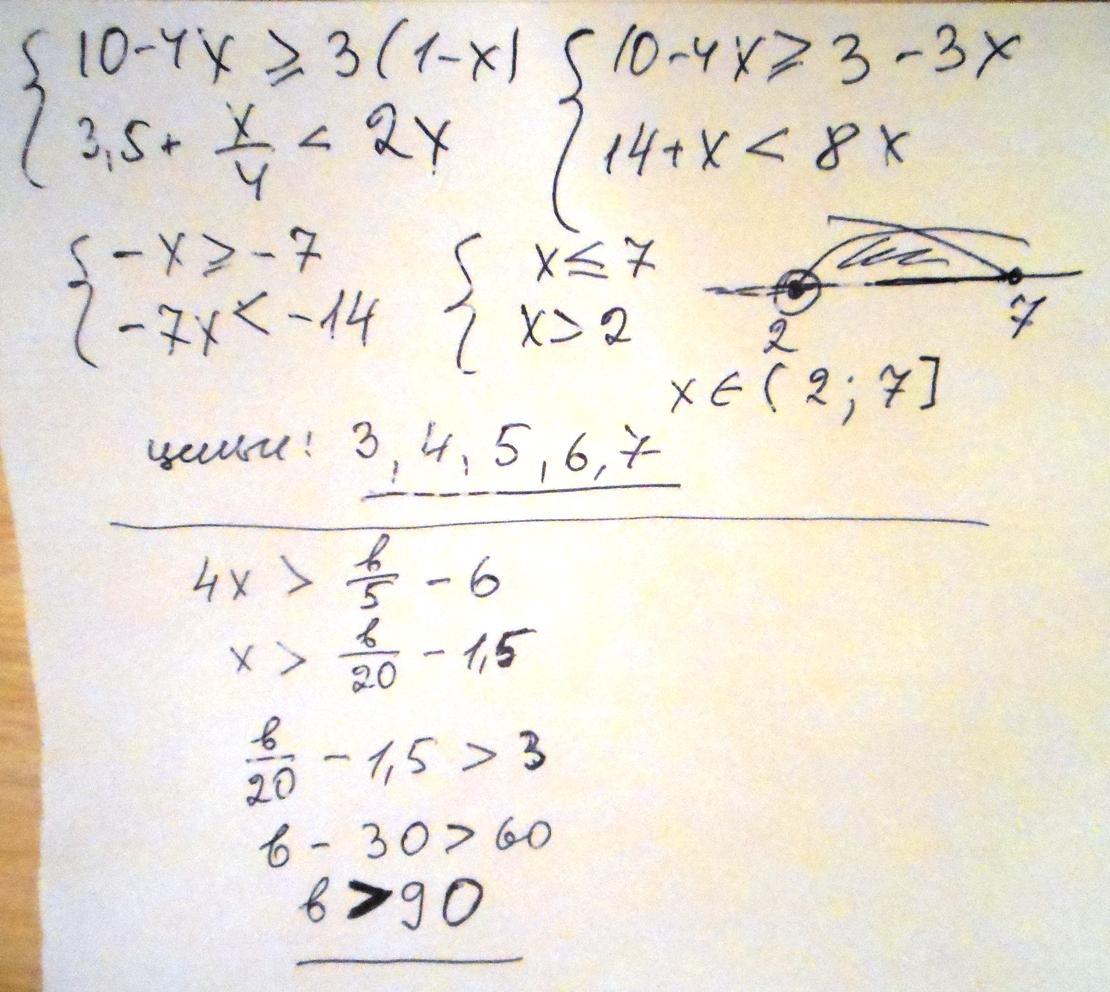 { 10-4x ≥ 3(1-x) { 10-4x ≥ 3-3x
3,5+ x/4 < 2x 14+x < 8x
{ -x ≥ -7 { x ≤ 7
-7x < -14 x > 2 2 7
x ∈ (2; 7]
целые: 3, 4, 5, 6, 7
4x > b/5 - 6
x > b/20 - 1,5
b/20 - 1,5 > 3
b - 30 > 60
b > 90